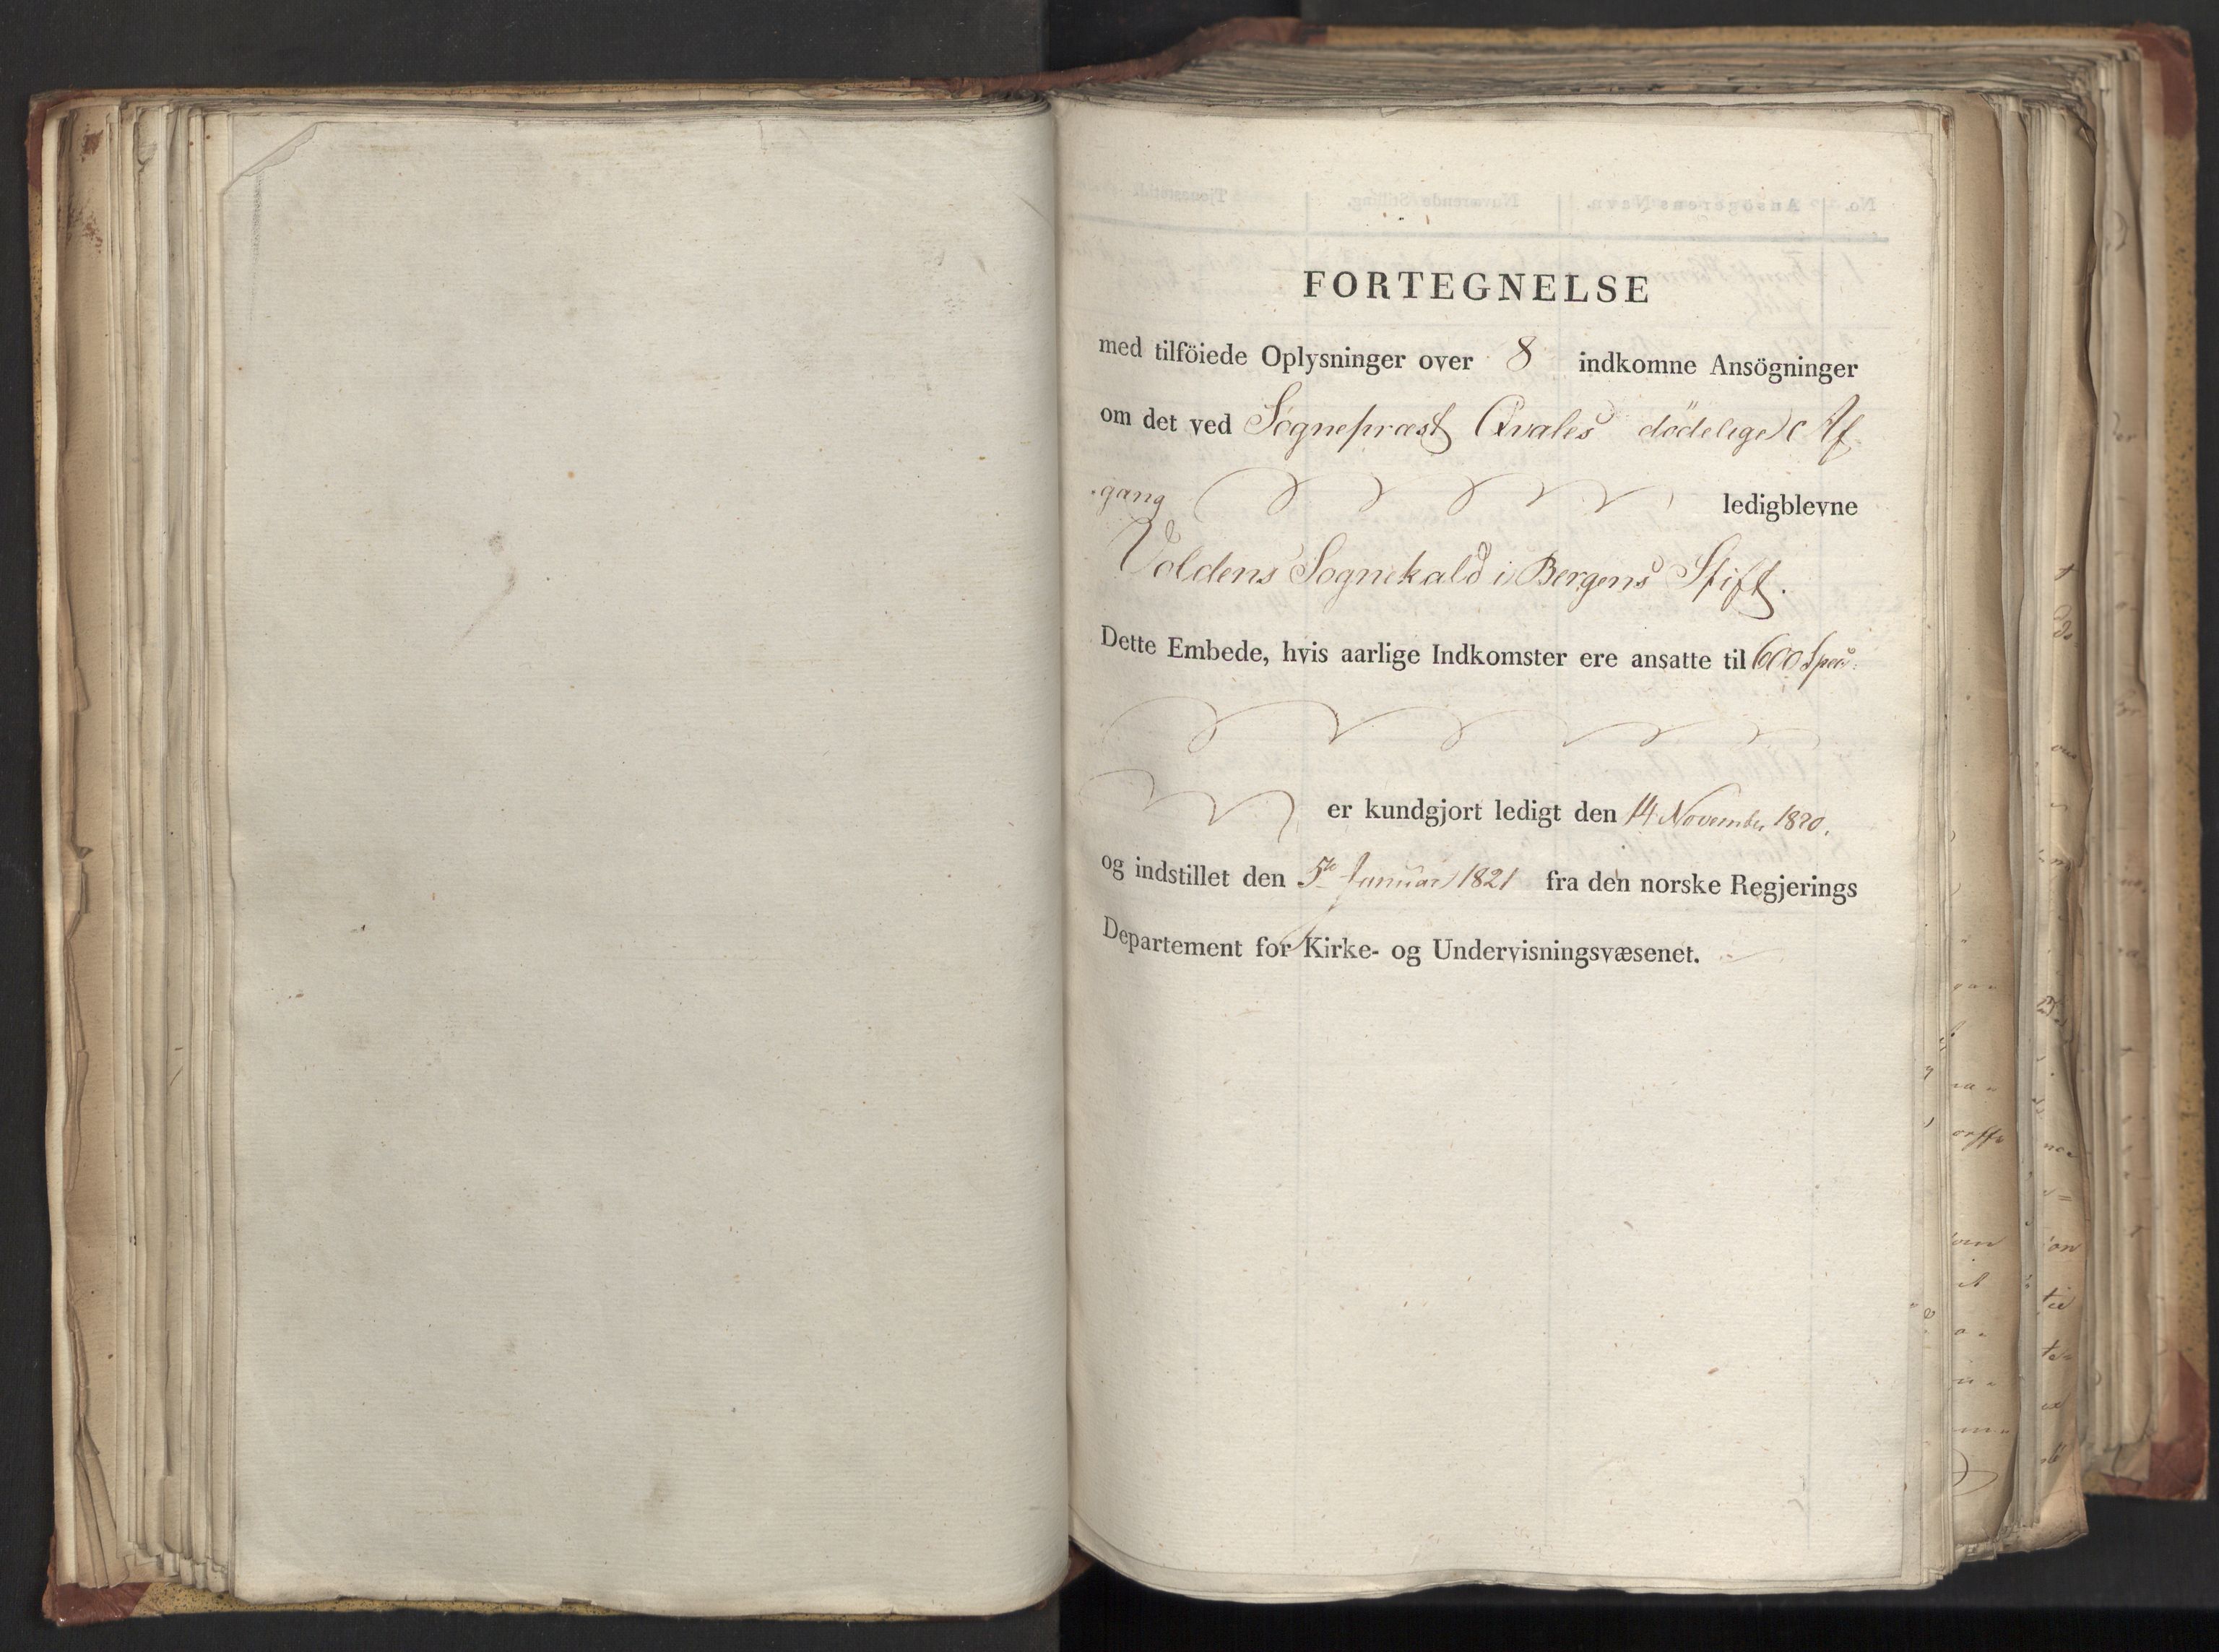 FORTEGNELSE
med tilföiede Oplysninger over 8 indkomne Ansögninger
om det ved Sognepræst Qvales dödelige Af
gang ledigblevne
Voldens Sognekald i Bergens Stift.
Dette Embede, hvis aarlige Indkomster ere ansatte til 600 Spec:
er kundgjort ledigt den 14 November 1820.
og indstillet den 5te Januar 1821 fra den norske Regjerings
Departement for Kirke- og Undervisningsvæsenet.